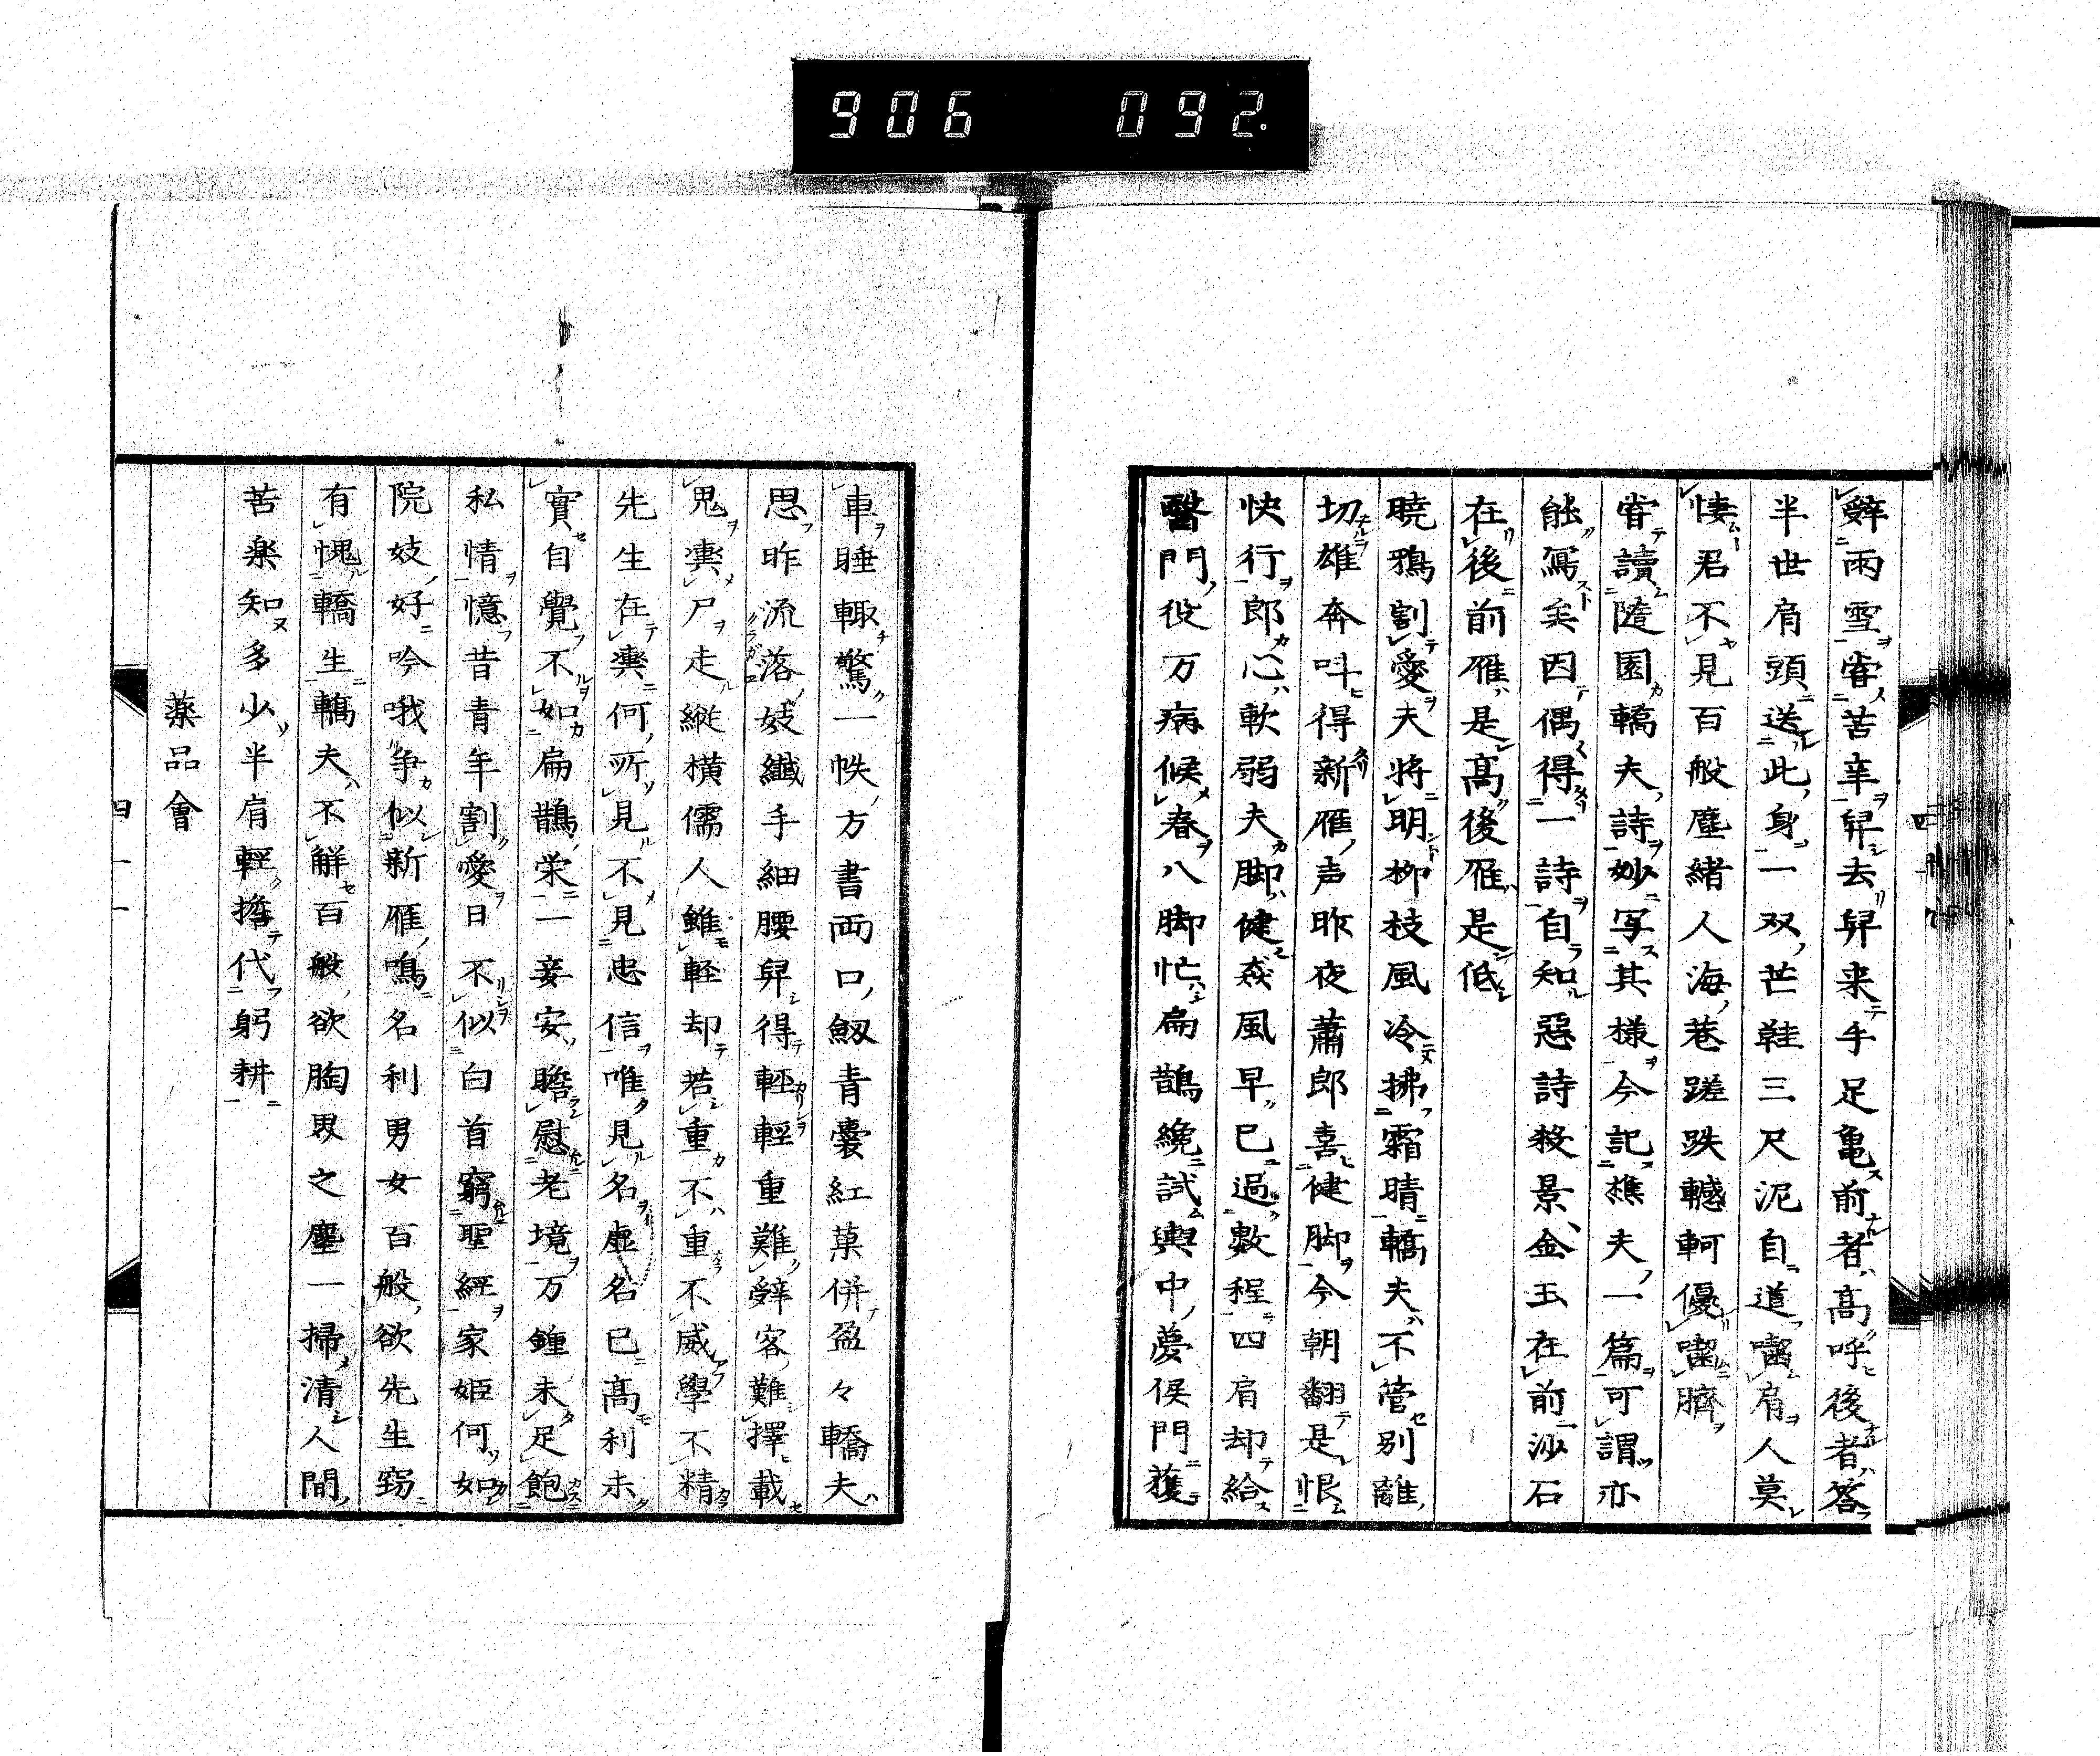 906 092.
辭雨雪嘗苦辛舁去舁来手足亀前者高呼後者答
半世肩頭送此身一双芒鞋三尺泥自道囓肩人莫
悽君不見百般塵緒人海巷蹉跌轗軻優囓臍
嘗讀随園轎夫詩妙写其様今記樵夫一篇可謂亦
能寫矣因偶得一詩自知惡詩殺景金玉在前沙石
在後前雁是高後雁是低
曉鴉割愛夫將明柳枝風冷拂霜晴轎夫不管別離
切雄奔呌得新雁声昨夜蕭郎喜健脚今朝翻是恨
快行郎心軟弱夫脚健森風早已過數程四肩却給
醫門役万病候春八脚忙扁鵲纔試輿中夢侯門獲
車睡輙驚一帙方書両口劔青嚢紅菓併盈々轎夫
思昨流落妓纎手細腰舁得輕輕重難辭客難擇載
鬼輿尸走縦横儒人雖軽却若重不重不威學不精
先生在輿何所見不見忠信唯見名虚名已高利未
實自覺不如扁鵲栄一妾安贍慰老境万鍾未足飽
私情憶昔青年割愛日不似白首窮聖經家姫何如
院妓好吟哦争似新雁鳴名利男女百般欲先生窃
有愧轎生轎夫不解百般欲胸界之塵一掃清人間
苦楽知多少半肩輕擔代躬耕
薬品會
四一一